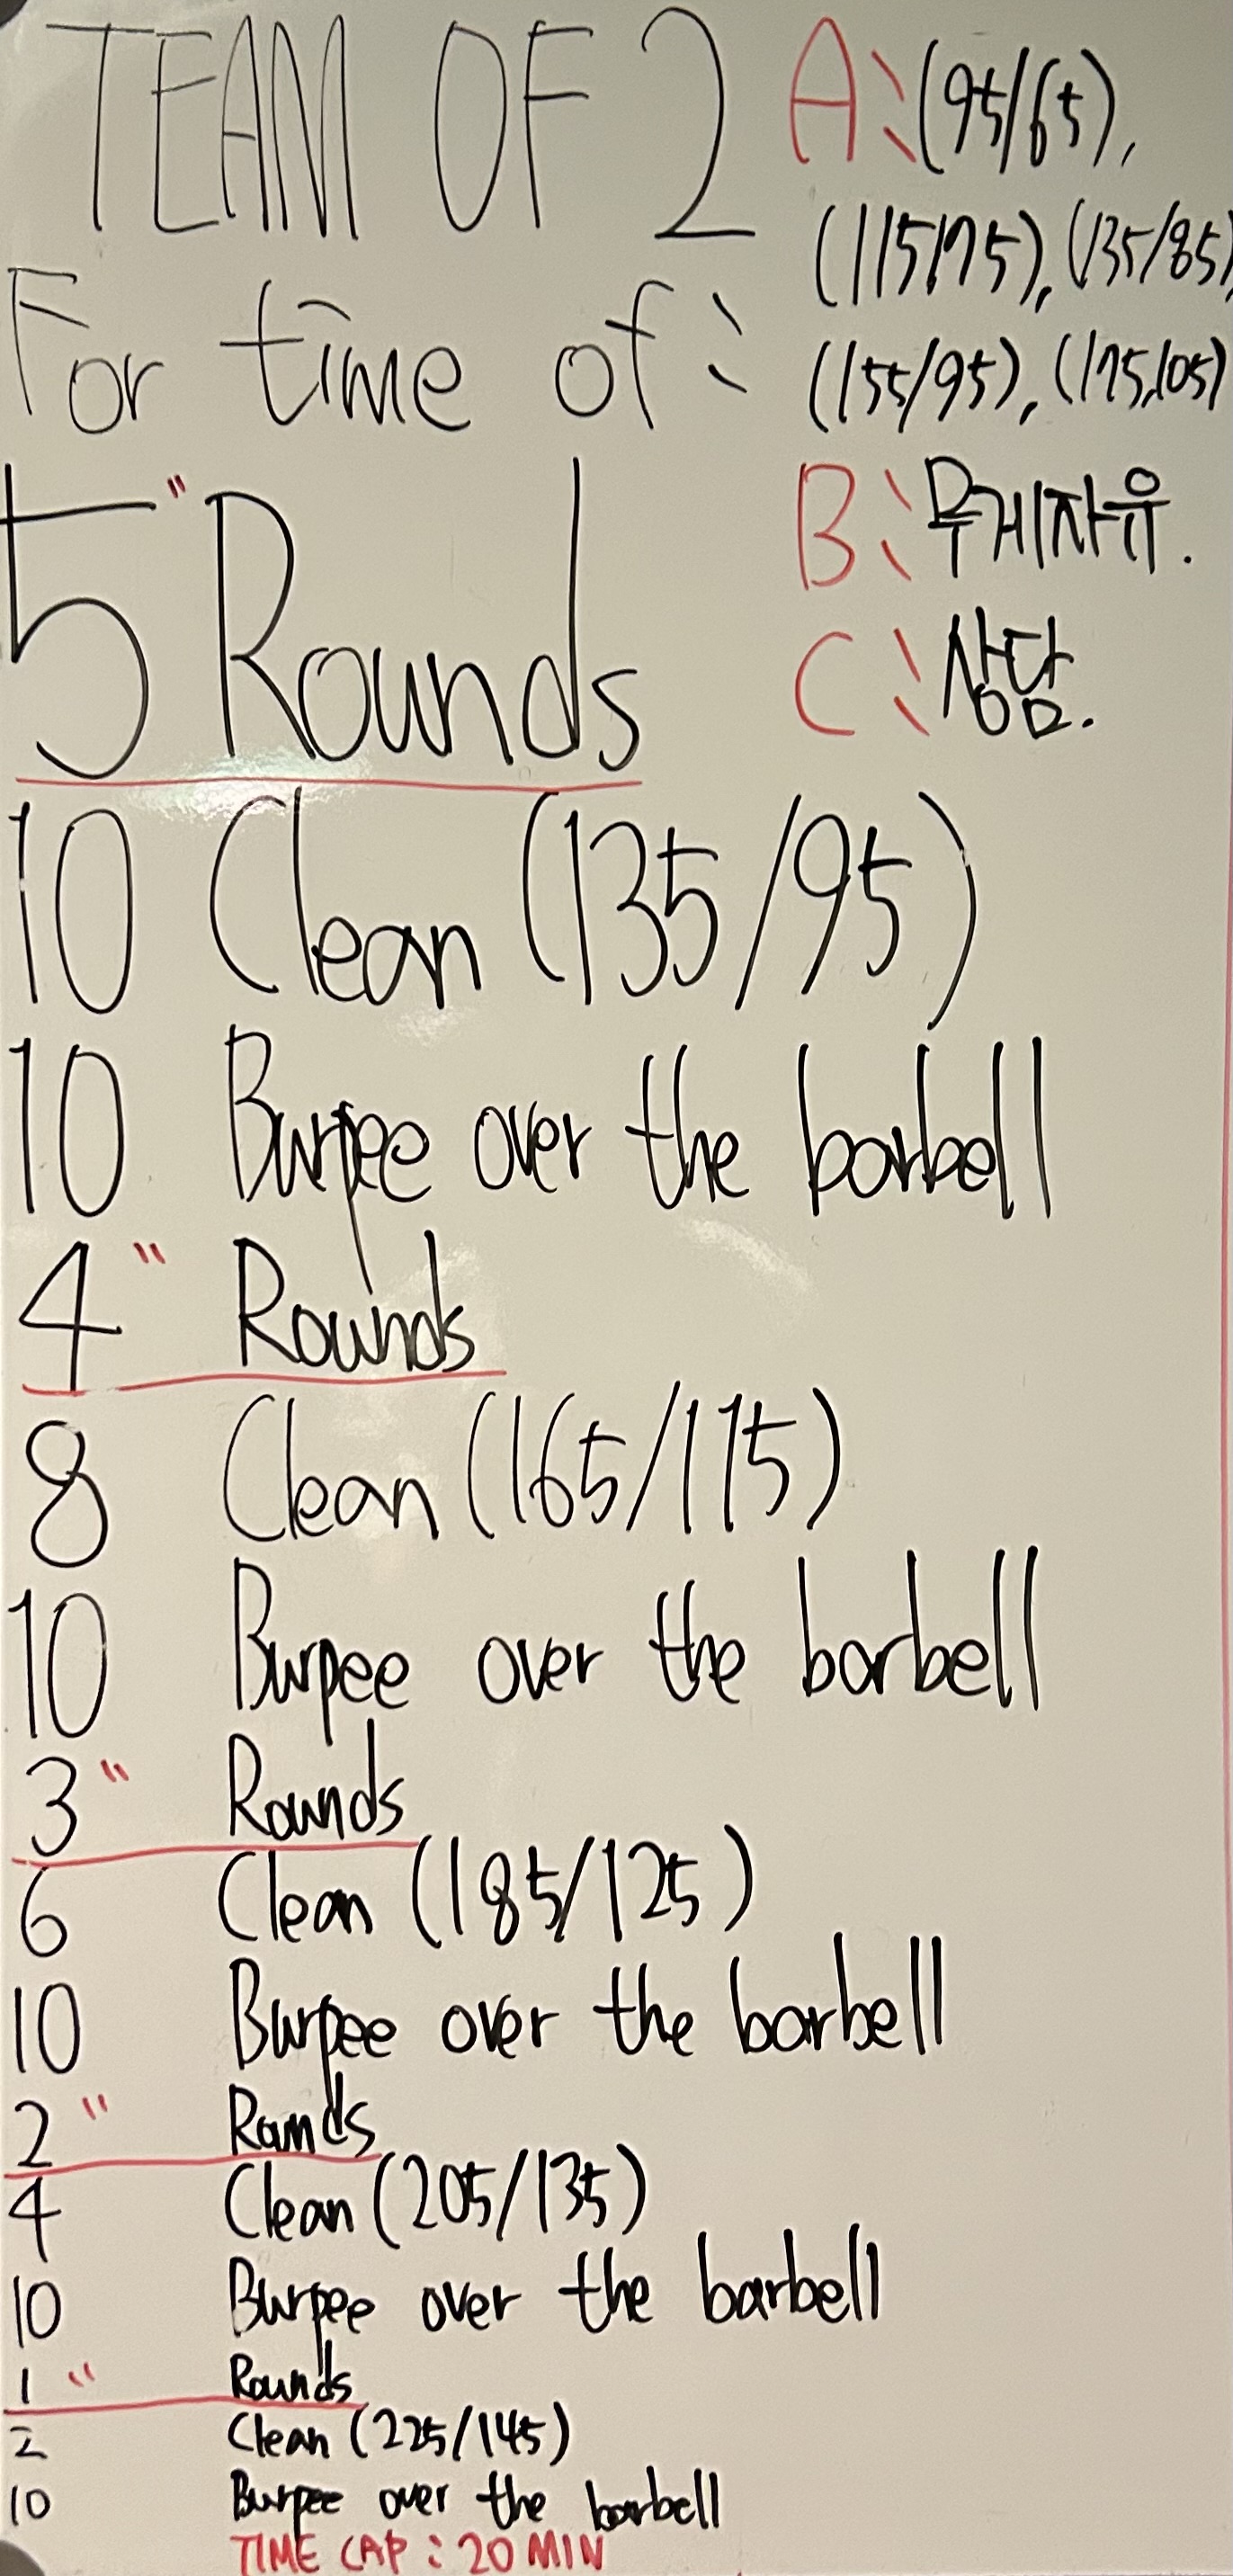 TEAM OF 2
For time of :
5" Rounds
10 Clean (135/95)
10 Burpee over the barbell
4" Rounds
8 Clean (165/115)
10 Burpee over the barbell
3" Rounds
6 Clean (185/125)
10 Burpee over the barbell
2" Rounds
4 Clean (205/135)
10 Burpee over the barbell
1" Rounds
2 Clean (225/145)
10 Burpee over the barbell
TIME CAP : 20 MIN
A: (95/65),
(115/75), (135/85)
(155/95), (175,105)
B: 무게자유.
C: 상담.